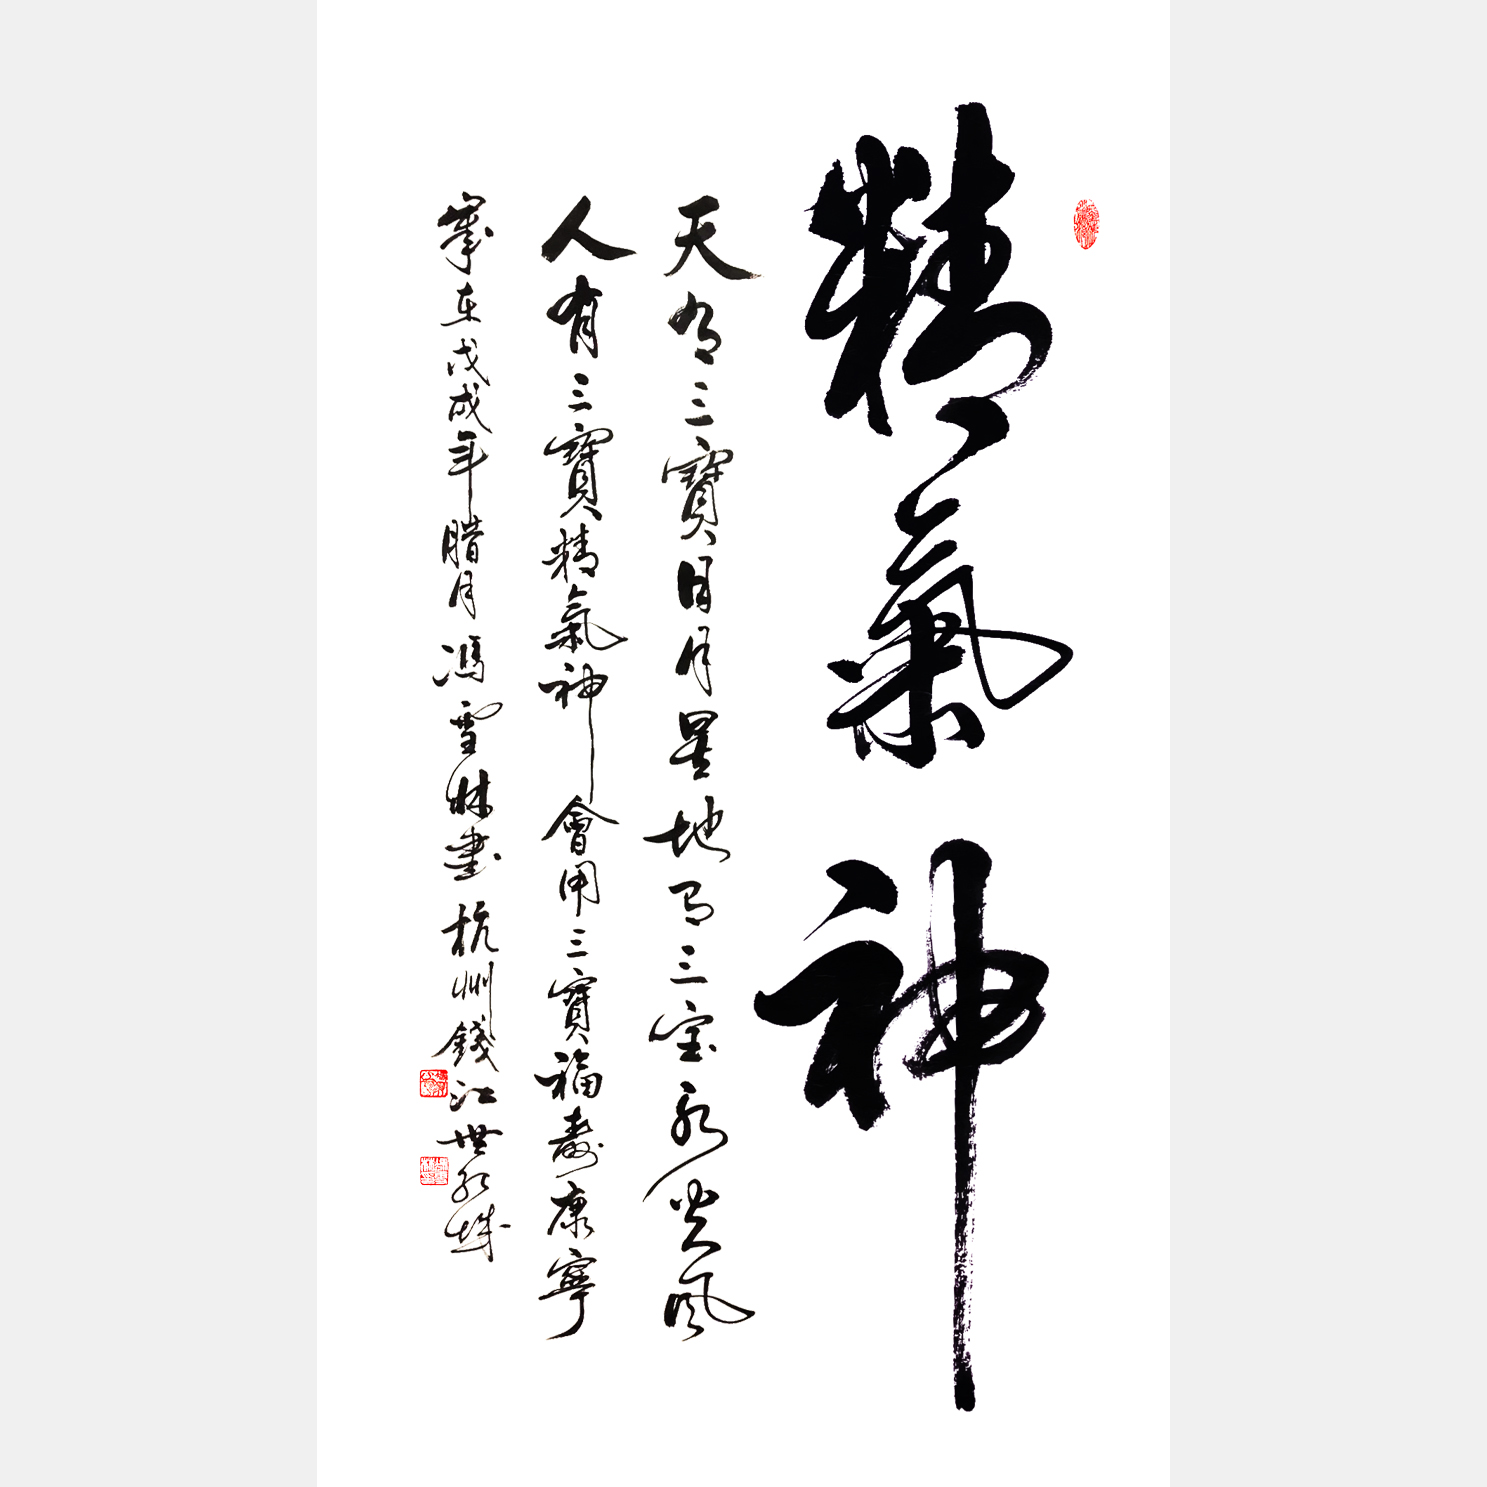 精氣神
天有三寶日月星地有三宝水火風
人有三寶精氣神會用三寶福壽康寧
歲在戊戌年腊月馮雪林書杭州錢江世紀城